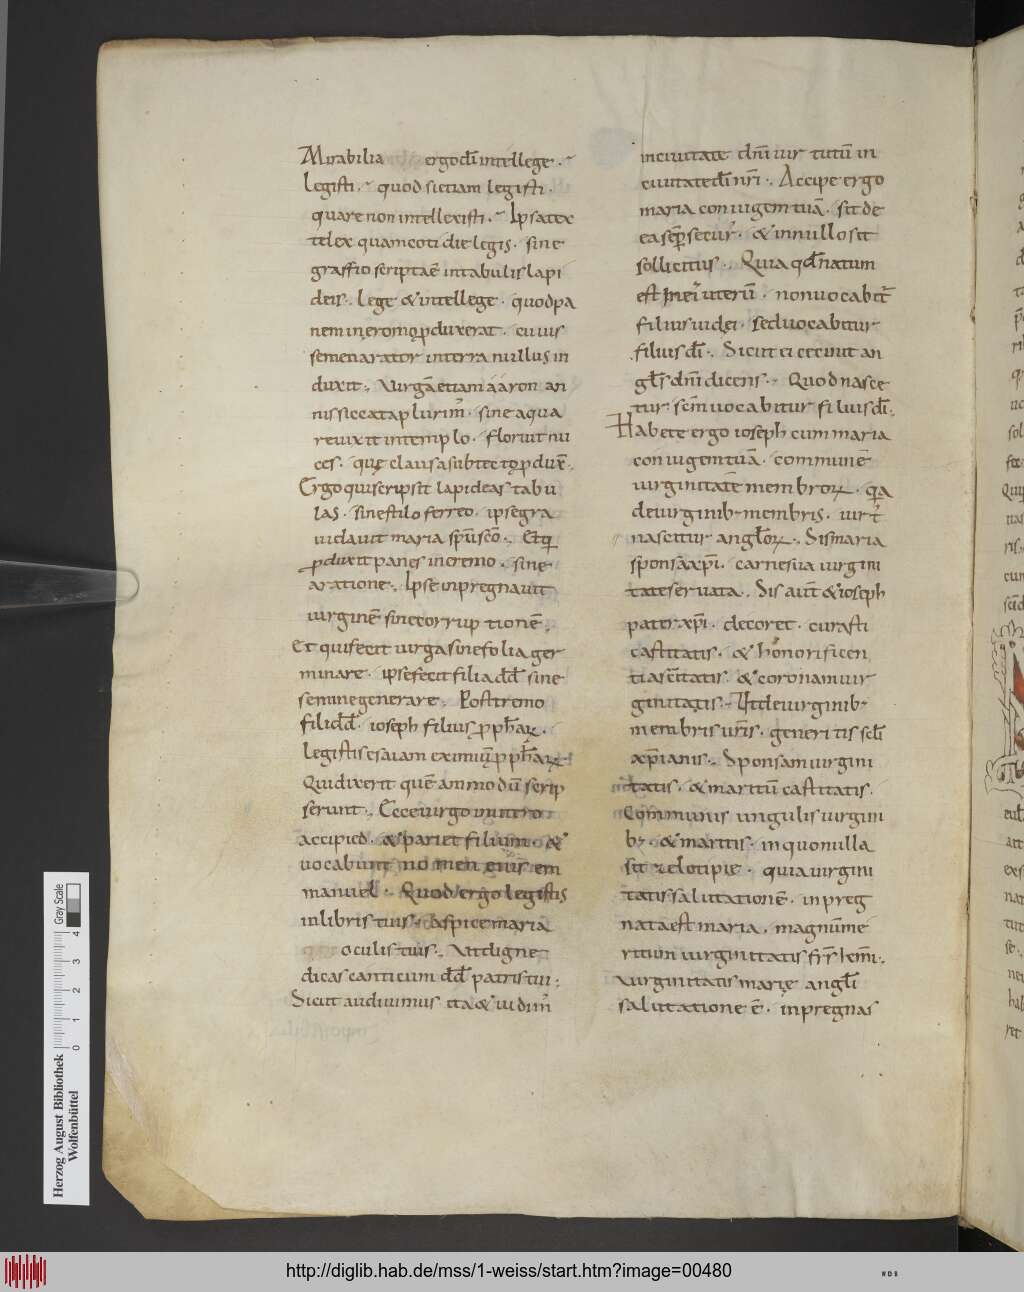 Mirabilia ergo dī intellege.
Legisti. quod si etiam legisti.
quare non intellexisti. Ipsa tex
tt lex quam cotidie legis. sine
graffio scriptaē in tabulis lapi
deis. Lege & intellege. quod pa
nem in eromo pduxerat. cuius
semen arator in terra nullus in
duxit. Virgā etiam aaron an
nis siccata plurim̄. sine aqua
reuixit in templo. floruit nu
ces. quę clausa sub tecto pdux̄.
Ergo qui scripsit lapideas tabu
las. sine stilo ferreo. ipse gra
uidauit maria sp̄u sc̄o. Et q
pduxit panes in eremo. sine
aratione. Ipse inpregnauit
uirginē sine corruptionē.
Et qui fecit uirga sine folia ger
minare. ipse fecit filia dd̄ sine
semine generare. Postremo
fili dd̄. ioseph filius pph̄aꝝ.
Legistis esaiam eximiū pph̄aꝝ
Qui dixerit quēammodū scrip
serunt. Ecce uirgo in utro
accipi&. & pari& filium. &
uocabunt nomen eius em
manuel. Quod ergo legistis
in libris tuis. Aspice maria
oculis tuis. Ut digne
dicas canticum dd̄ patris tui;
Sicut audiuimus ita & uidim̄
in ciuitate dn̄i uir tutū in
ciuitate dī nr̄i. Accipe ergo
maria coniugem tuā. sit de
ea sēp secur. & in nullo sit
sollicitus. Quia qd̄ natum
est In ei uterū. non uocabit̄
filius uidei. sed uocabitur
filius dī. Sicut ei cecinit an
gl̄s dn̄i dicens. Quod nasce
tur scm̄ uocabitur filius dī.
Habete ergo ioseph cum maria
coniugem tuā. communē
uirginitatē membroꝝ. qa
de uirginib; membris. uirt̄
nascitur angl̄oꝝ. Sis maria
sponsa xp̄i. carne sua uirgini
tate seruata. Sis aut̄ & ioseph
pater xp̄i. decoret. curasti
castitatis. & honorificen
tia sc̄itatis. & coronam uir
ginitatis. Ut de uirginib;
membris ur̄is. generitis scl̄i
xp̄ianis. Sponsam uirgini
tatis. & maritū castitatis.
Communis uingulis uirgini
b;. & maritis. in quo nulla
sit zelotipie. quia uirgini
tatis salutationē. inpreg
nata est maria. magnū me
ritum uirginitatis fr̄s km̄i.
Uirginitatis marię angl̄i
salutatione ē. inpregnas
Herzog August Bibliothek
Wolfenbüttel
Gray Scale
0 1 2 3 4
http://diglib.hab.de/mss/1-weiss/start.htm?image=00480